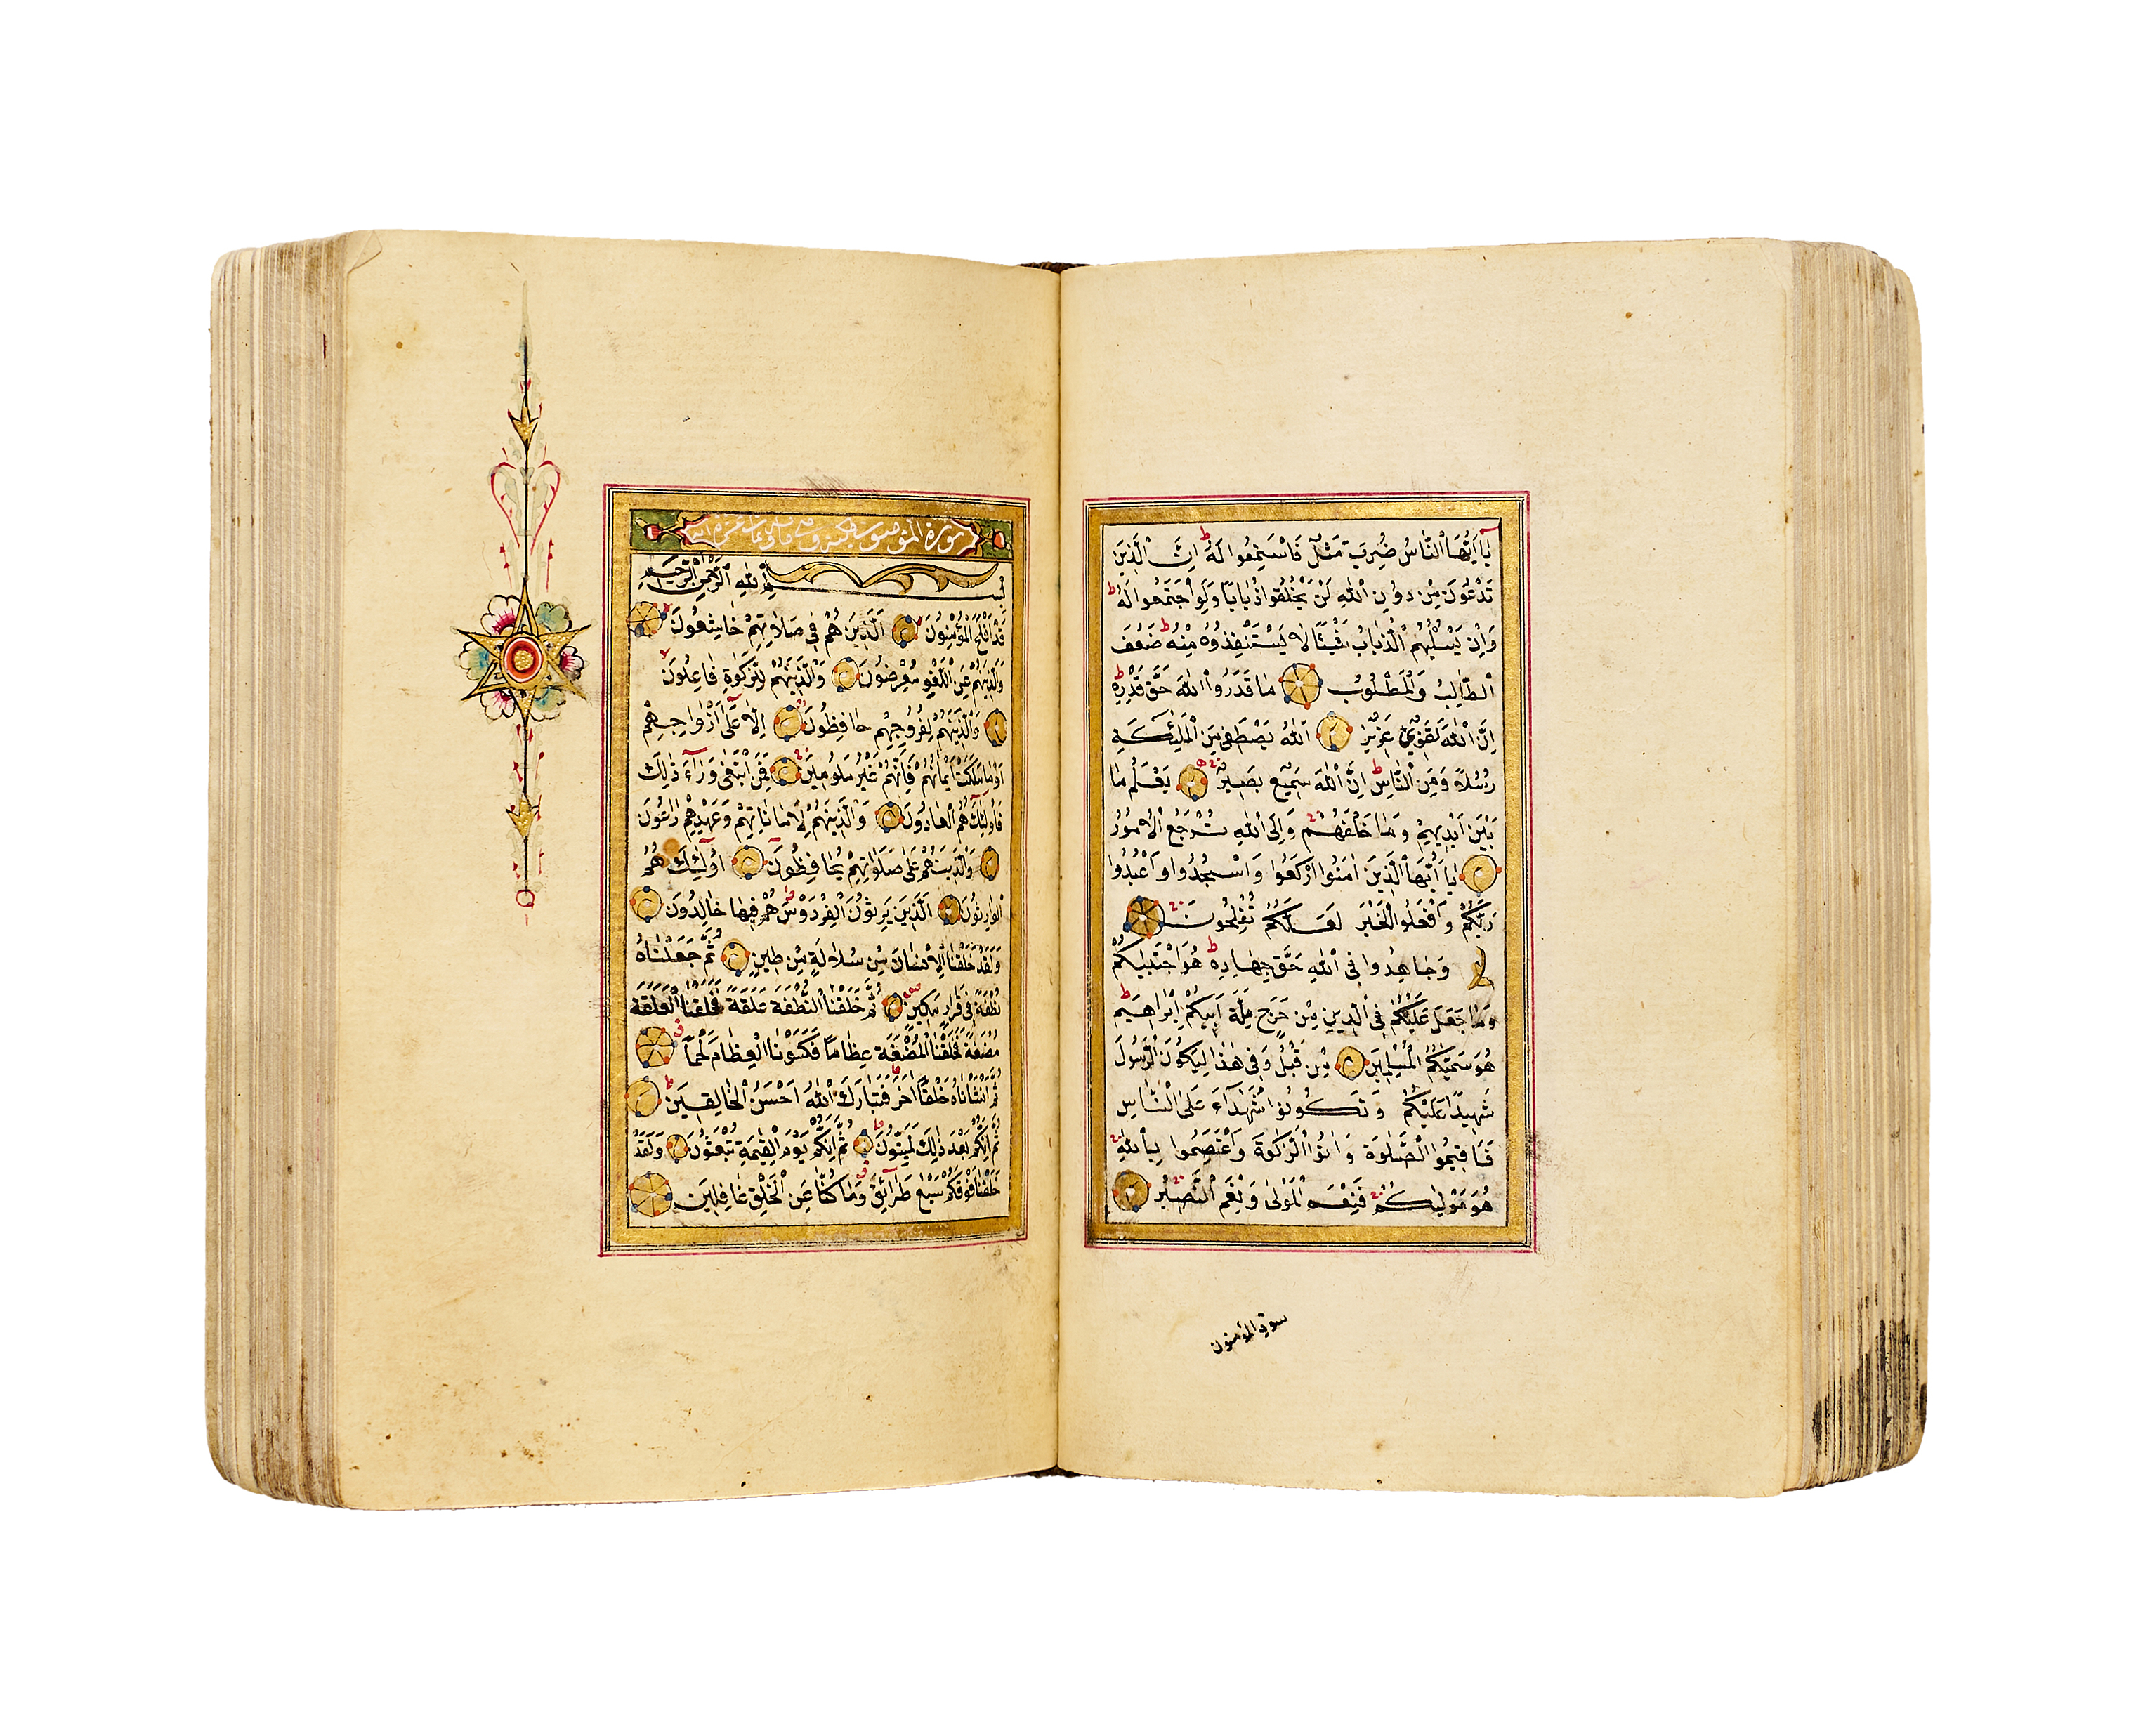 يَا اَيُّهَا النَّاسُ ضُرِبَ مَثَلٌ فَاسْتَمِعُوا لَهُ اِنَّ الَّذِينَ
تَدْعُونَ مِنْ دُونِ اللّٰهِ لَنْ يَخْلُقُوا ذُبَابًا وَلَوِ اجْتَمَعُوا لَهُ
وَاِنْ يَسْلُبْهُمُ الذُّبَابُ شَيْئًا لَا يَسْتَنْقِذُوهُ مِنْهُ ضَعُفَ
الطَّالِبُ وَالْمَطْلُوبُ مَا قَدَرُوا اللّٰهَ حَقَّ قَدْرِهِ
اِنَّ اللّٰهَ لَقَوِيٌّ عَزِيزٌ اَللّٰهُ يَصْطَفِي مِنَ الْمَلٰئِكَةِ
رُسُلًا وَمِنَ النَّاسِ اِنَّ اللّٰهَ سَمِيعٌ بَصِيرٌ يَعْلَمُ مَا
بَيْنَ اَيْدِيهِمْ وَمَا خَلْفَهُمْ وَاِلَى اللّٰهِ تُرْجَعُ الْاُمُورُ
يَا اَيُّهَا الَّذِينَ اٰمَنُوا ارْكَعُوا وَاسْجُدُوا وَاعْبُدُوا
رَبَّكُمْ وَافْعَلُوا الْخَيْرَ لَعَلَّكُمْ تُفْلِحُونَ
وَجَاهِدُوا فِي اللّٰهِ حَقَّ جِهَادِهِ هُوَ اجْتَبٰيكُمْ
وَمَا جَعَلَ عَلَيْكُمْ فِي الدِّينِ مِنْ حَرَجٍ مِلَّةَ اَبِيكُمْ اِبْرَاهِيمَ
هُوَ سَمّٰيكُمُ الْمُسْلِمِينَ مِنْ قَبْلُ وَفِي هٰذَا لِيَكُونَ الرَّسُولُ
شَهِيدًا عَلَيْكُمْ وَتَكُونُوا شُهَدَآءَ عَلَى النَّاسِ
فَاَقِيمُوا الصَّلٰوةَ وَاٰتُوا الزَّكٰوةَ وَاعْتَصِمُوا بِاللّٰهِ
هُوَ مَوْلٰيكُمْ فَنِعْمَ الْمَوْلٰى وَنِعْمَ النَّصِيرُ
سورة المؤمنون
سورة المؤمنون مكية وهي مائة وثمان عشرة اية
بِسْمِ اللّٰهِ الرَّحْمٰنِ الرَّحِيمِ
قَدْ اَفْلَحَ الْمُؤْمِنُونَ اَلَّذِينَ هُمْ فِي صَلَاتِهِمْ خَاشِعُونَ
وَالَّذِينَ هُمْ عَنِ اللَّغْوِ مُعْرِضُونَ وَالَّذِينَ هُمْ لِلزَّكٰوةِ فَاعِلُونَ
وَالَّذِينَ هُمْ لِفُرُوجِهِمْ حَافِظُونَ اِلَّا عَلٰى اَزْوَاجِهِمْ
اَوْ مَا مَلَكَتْ اَيْمَانُهُمْ فَاِنَّهُمْ غَيْرُ مَلُومِينَ فَمَنِ ابْتَغٰى وَرَآءَ ذٰلِكَ
فَاُولٰئِكَ هُمُ الْعَادُونَ وَالَّذِينَ هُمْ لِاَمَانَاتِهِمْ وَعَهْدِهِمْ رَاعُونَ
وَالَّذِينَ هُمْ عَلٰى صَلَوَاتِهِمْ يُحَافِظُونَ اُولٰئِكَ هُمُ
الْوَارِثُونَ اَلَّذِينَ يَرِثُونَ الْفِرْدَوْسَ هُمْ فِيهَا خَالِدُونَ
وَلَقَدْ خَلَقْنَا الْاِنْسَانَ مِنْ سُلَالَةٍ مِنْ طِينٍ ثُمَّ جَعَلْنَاهُ
نُطْفَةً فِي قَرَارٍ مَكِينٍ ثُمَّ خَلَقْنَا النُّطْفَةَ عَلَقَةً فَخَلَقْنَا الْعَلَقَةَ
مُضْغَةً فَخَلَقْنَا الْمُضْغَةَ عِظَامًا فَكَسَوْنَا الْعِظَامَ لَحْمًا
ثُمَّ اَنْشَأْنَاهُ خَلْقًا اٰخَرَ فَتَبَارَكَ اللّٰهُ اَحْسَنُ الْخَالِقِينَ
ثُمَّ اِنَّكُمْ بَعْدَ ذٰلِكَ لَمَيِّتُونَ ثُمَّ اِنَّكُمْ يَوْمَ الْقِيٰمَةِ تُبْعَثُونَ وَلَقَدْ
خَلَقْنَا فَوْقَكُمْ سَبْعَ طَرَآئِقَ وَمَا كُنَّا عَنِ الْخَلْقِ غَافِلِينَ